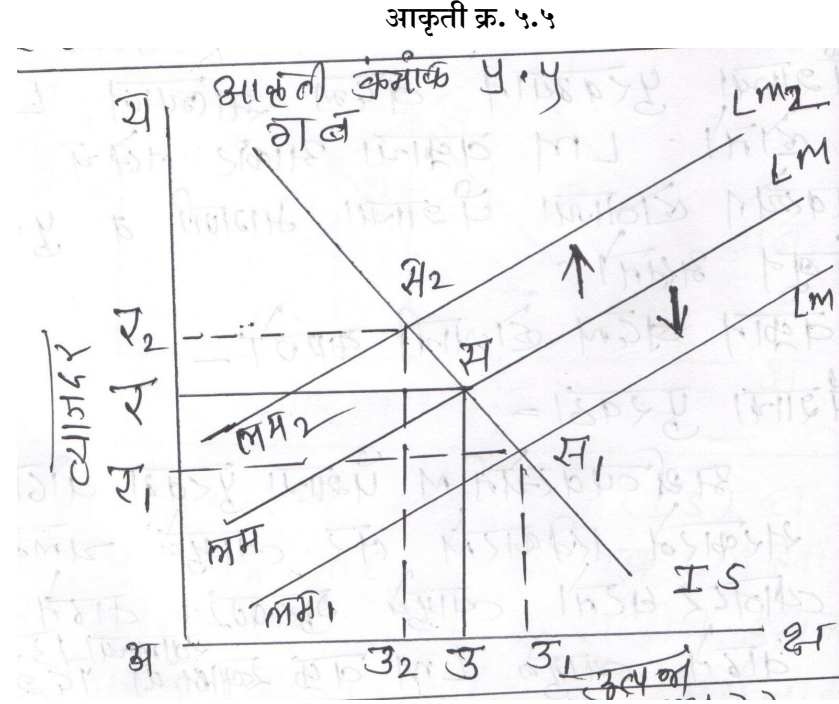 आकृती क्र. ५.५
आकृती क्रमांक ५.५
य
ग ब
LM2
LM
LM
स2
स
स1
र2
र
र1
व्याजदर
लम2
लम
लम1
IS
अ
उ2 उ उ1
क्ष
उत्पन्न